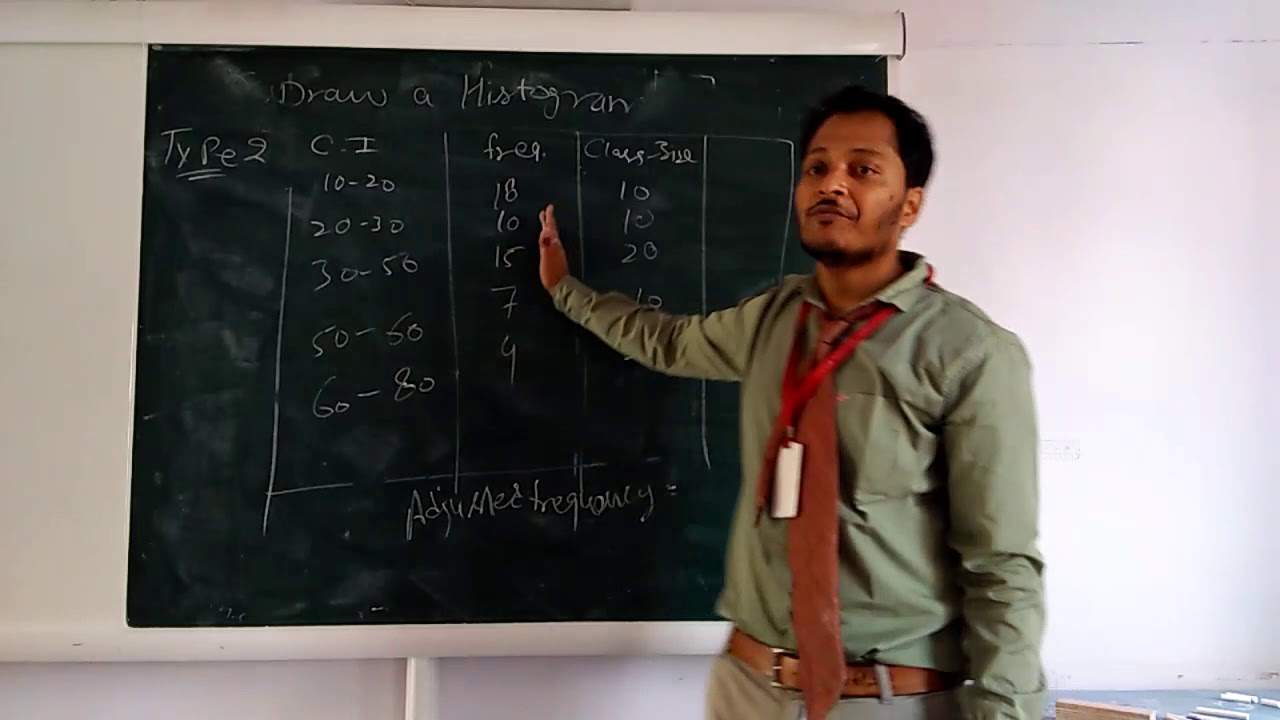 Draw a Histogram
Type 2 C.I freq. Class-Size
10-20 18 10
20-30 10 10
30-50 15 20
50-60 7 10
60-80 4
Adjusted frequency =